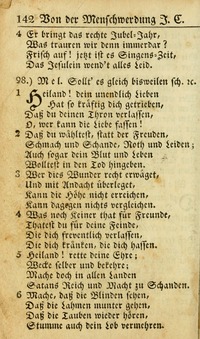 142 Von der Menschwerdung J. C.
4 Er bringt das rechte Jubel-Jahr,
Was trauren wir denn immerdar?
Frisch auf! jetzt ist es Singens-Zeit,
Das Jesulein wend't alles Leid.
98.) Mel. Sollt' es gleich bisweilen sch. ꝛc.
1 Heiland! dein unendlich Lieben
Hat so kräftig dich getrieben,
Daß du deinen Thron verlassen,
O, wer kann die Liebe fassen!
2 Daß du wähltest, statt der Freuden,
Schmach und Schande, Noth und Leiden;
Auch sogar dein Blut und Leben
Wolltest in den Tod hingeben.
3 Wer dies Wunder recht erwäget,
Und mit Andacht überleget,
Kann die Höhe nicht erreichen,
Kann dagegen nichts vergleichen.
4 Was noch Keiner that für Freunde,
Thatest du für deine Feinde,
Die dich freventlich verlassen,
Die dich kränken, die dich hassen.
5 Heiland! rette deine Ehre;
Wecke selber und bekehre;
Mache doch in allen Landen
Satans Reich und Macht zu Schanden.
6 Mache, daß die Blinden sehen,
Daß die Lahmen munter gehen,
Daß die Tauben wieder hören,
Stumme auch dein Lob vermehren.